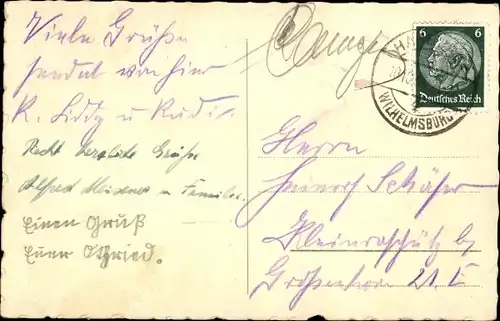 Viele Grüße
sendet von hier
K. Lidtz u Rudi.
Recht herzliche Grüße
Alfred Meisner u Familie.
Einen Gruß
Euer Otfried.
6 6
Deutsches Reich
HA
WILHELMSBURG
Herrn
Heinrich Schäfer
Kleinraschütz bg
Großenhain 21 E